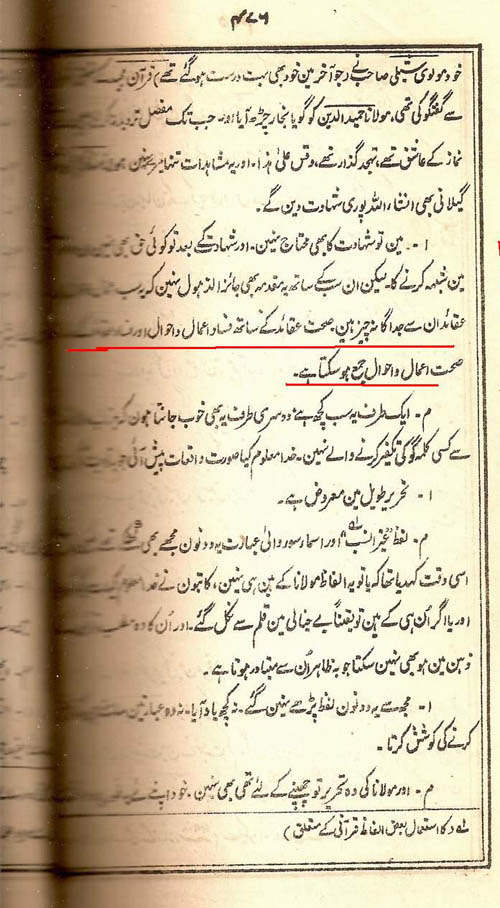 ۴۷۶
خود مولوی شبلی صاحب نے (جو آخر مین خود بھی بہت درست ہو گئے تھے) قرآن
سے گفتگو کی تھی، مولانا حمید الدین کو گویا بخار چڑھ آیا اور۔ جب تک مفصل تردید
نماز کے عاشق تھے، تہجد گذار تھے، وقس علیٰ ہذا۔ اور یہ مشاہدات تنہا میرے نہین
گیلانی بھی انشاء اللہ پوری شہادت دین گے۔
ا۔ مین تو شہادت کا بھی محتاج نہین۔ اور شہادت کے بعد تو کوئی حق بھی نہین
مین شبہہ کرنے کا۔ لیکن ان سب کے ساتھ یہ مقدمہ بھی جائز الذہول نہین کہ یہ سب
عقائد ان سے جداگانہ چیز ہین۔ صحت عقائد کے ساتھ فساد اعمال و احوال اور فساد
صحت اعمال و احوال جمع ہو سکتا ہے۔
م۔ ایک طرف یہ سب کچھ ہے؛ دوسری طرف یہ بھی خوب جانتا ہون کہ
سے کسی کلمہ گو کی تکفیر کرنے والے نہین۔ خدا معلوم کیا صورت واقعات پیش آئی
ا۔ تحریر طویل مین معروض ہے۔
م۔ لفظ "غیر انسب" اور اسمار سور والی عبارت یہ دونون مجھے بھی
اسی وقت کہدیا تھا کہ یا تو یہ الفاظ مولانا کے مین ہی نہین، کاتبون نے
اور یا اگر اُن ہی کے مین تو یقیناً بے خیالی مین قلم سے نکل گئے۔ اور اُن کا وہ مطلب
ذہین مین ہو بھی نہین سکتا جو بہ ظاہر اُن سے متبادر ہوتا ہے۔
ا۔ مجھ سے یہ دونون لفظ پڑھے نہین گئے۔ نہ کچھ یاد آیا۔ نہ وہ عبارتین
کرنے کی کوشش کرتا۔
م۔ اور مولانا کی وہ تحریر تو چھپنے کے لئے تھی بھی نہین۔ خود اپنے
لہ (کا استعمال بعض الفاظ قرآنی کے متعلق)